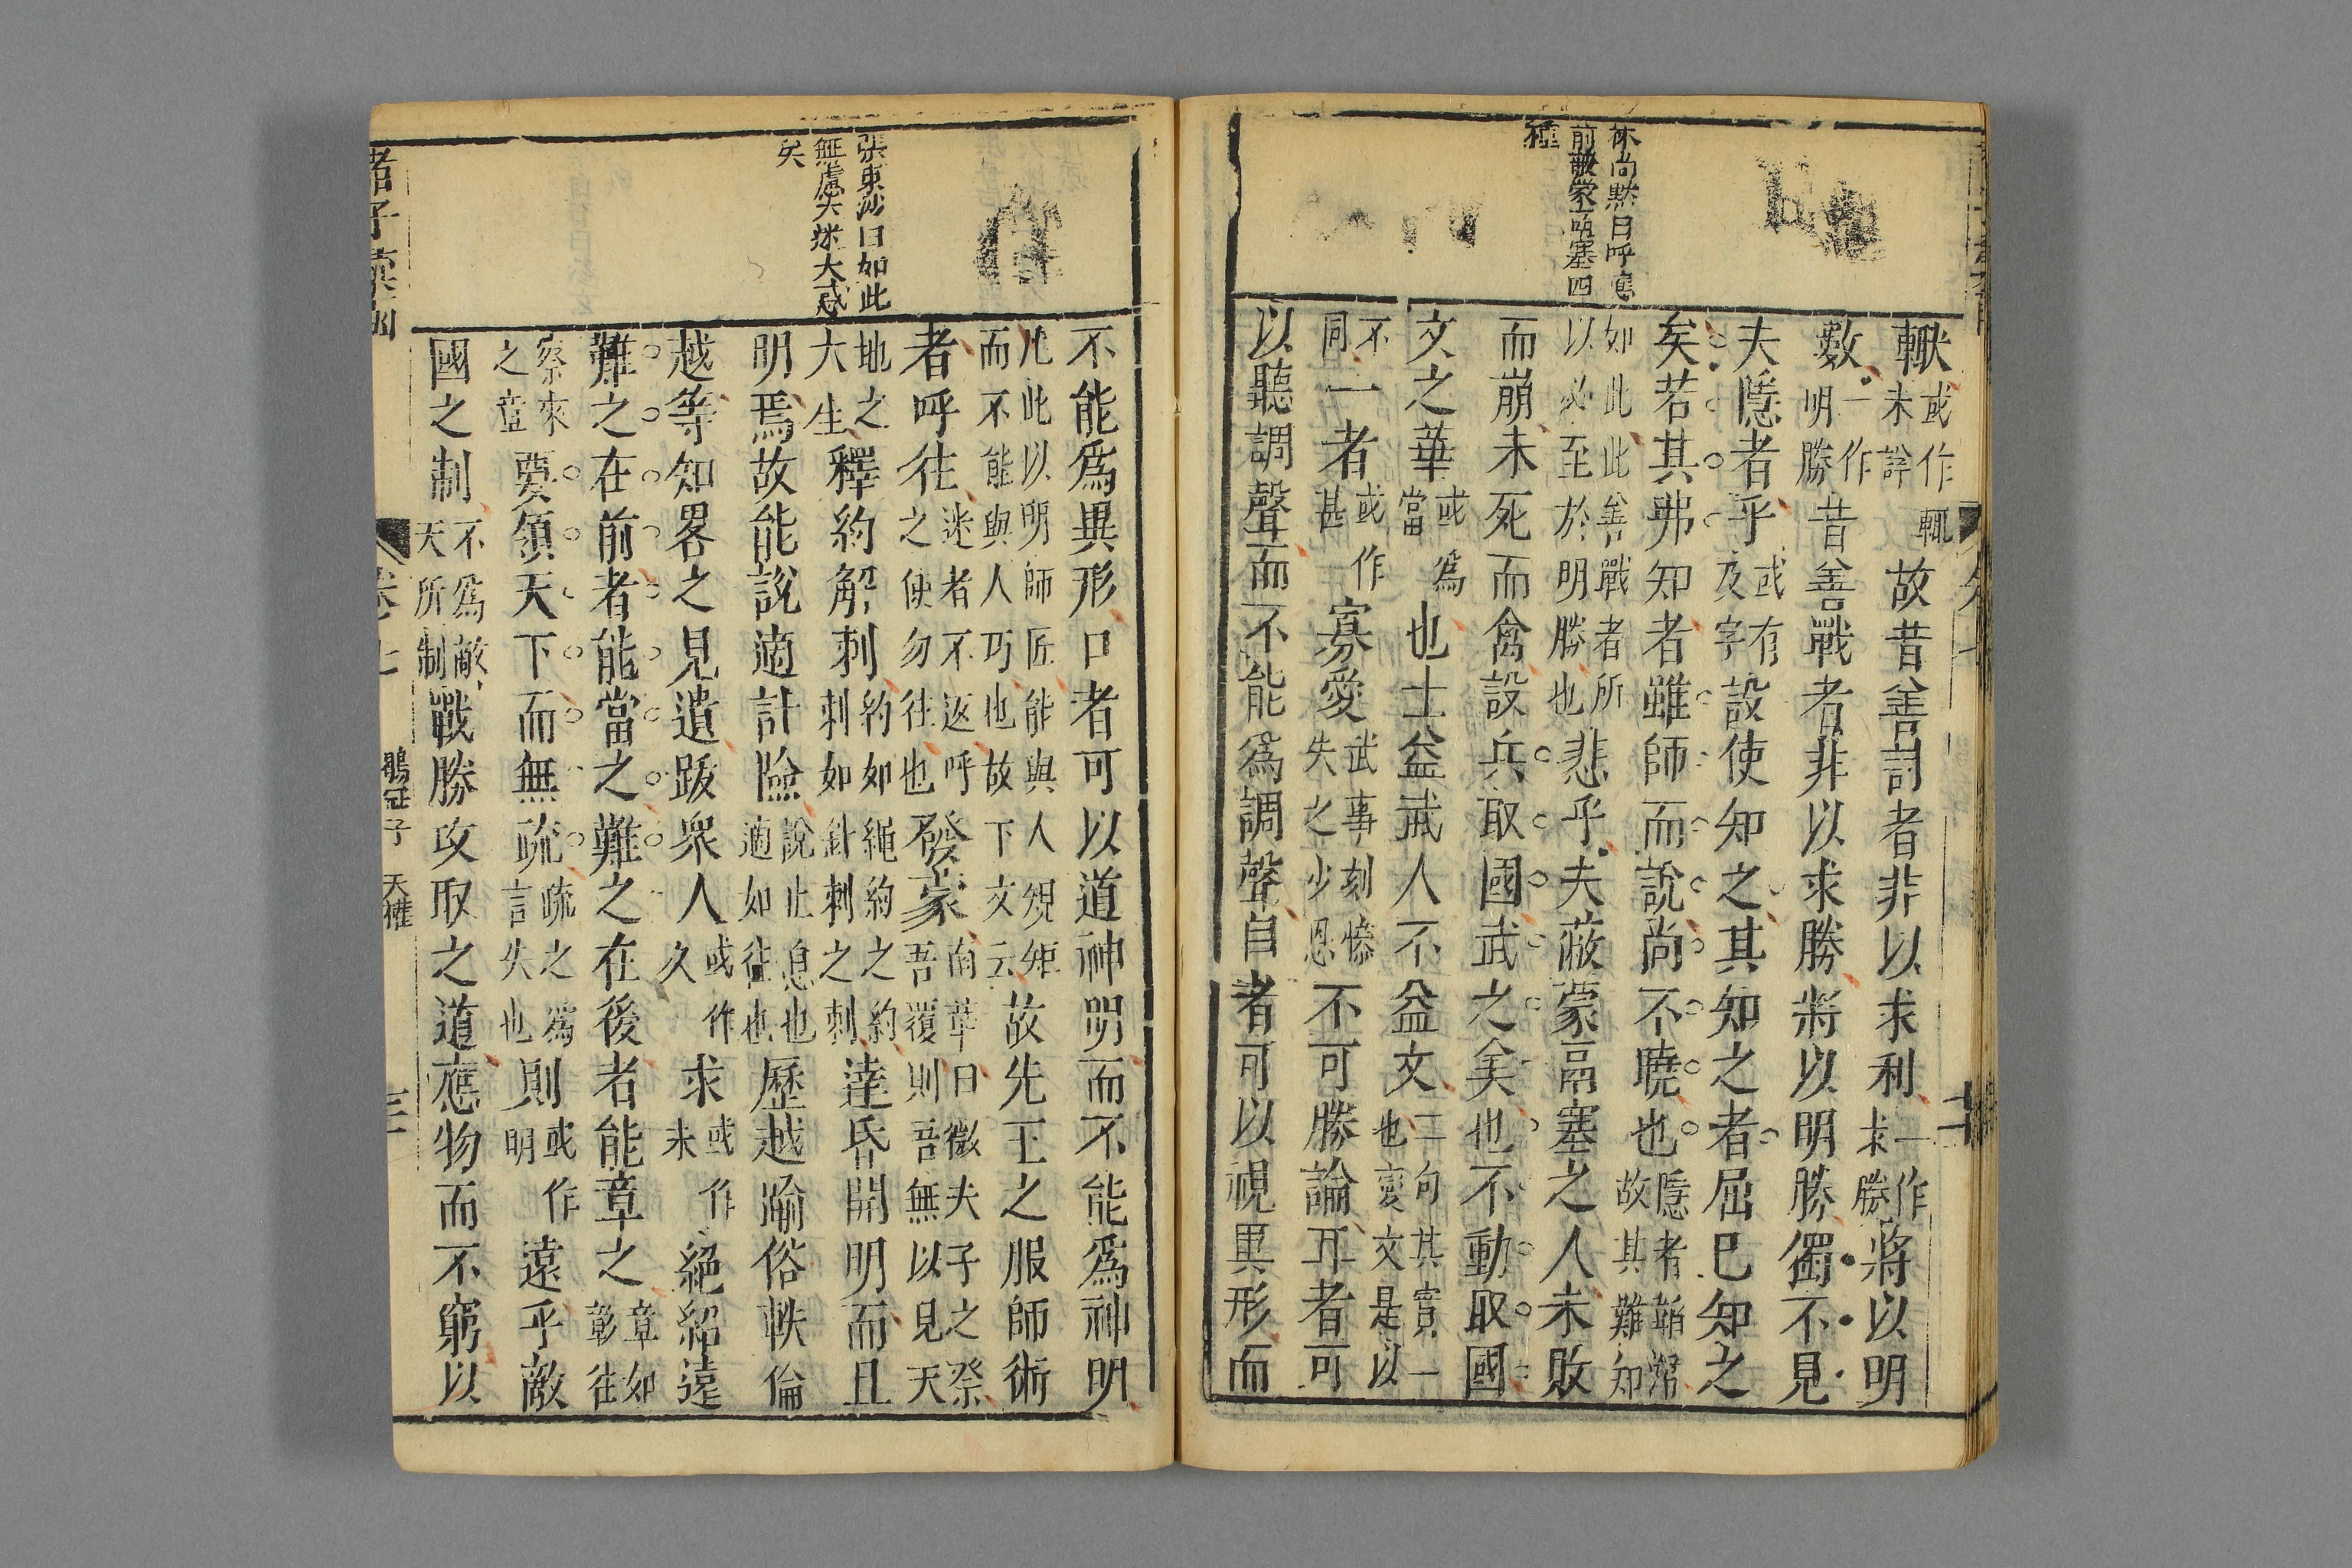 林尚默曰呼應
前蔽蒙鬲塞四
種
輱或作輒未詳故昔善討者非以求利一作求勝將以明
數一作明勝昔善戰者非以求勝將以明勝獨不見
夫隱者乎或有友字設使知之其知之者屈已知之
矣若其弗知者雖師而說尚不曉也隱者韜潛故其難知
如此此善戰者所以必至於明勝也悲乎夫蔽蒙鬲塞之人未敗
而崩未死而禽設兵取國武之美也不動取國
文之華或爲當也士益武人不益文二句其實一也變文是以
不同一者或作甚寡愛武事刻慘失之少恩不可勝論耳者可
以聽調聲而不能爲調聲自者可以視異形而
張東沙曰如此
無慮大迷大惑
矣
不能爲異形口者可以道神明而不能爲神明
凡此以明師匠能與人規矩而不能與人巧也故下文云故先王之服師術
者呼往迷者不返呼之使勿往也發蒙南華曰微夫子之發吾覆則吾無以見天
地之大生釋約解刺約如繩約之約刺如針刺之刺達昏開明而且
明焉故能說適計險說止息也適如往也歷越踰俗軼倫
越等知畧之見遺跋衆人或作久求或作未絕紹遠
難之在前者能當之難之在後者能章之章如彰往
察來之章要領天下而無疏疏之爲言失也則或作明遠乎敵
國之制不爲敵天所制戰勝攻取之道應物而不窮以
諸子
卷七
鶡冠子
天權
三